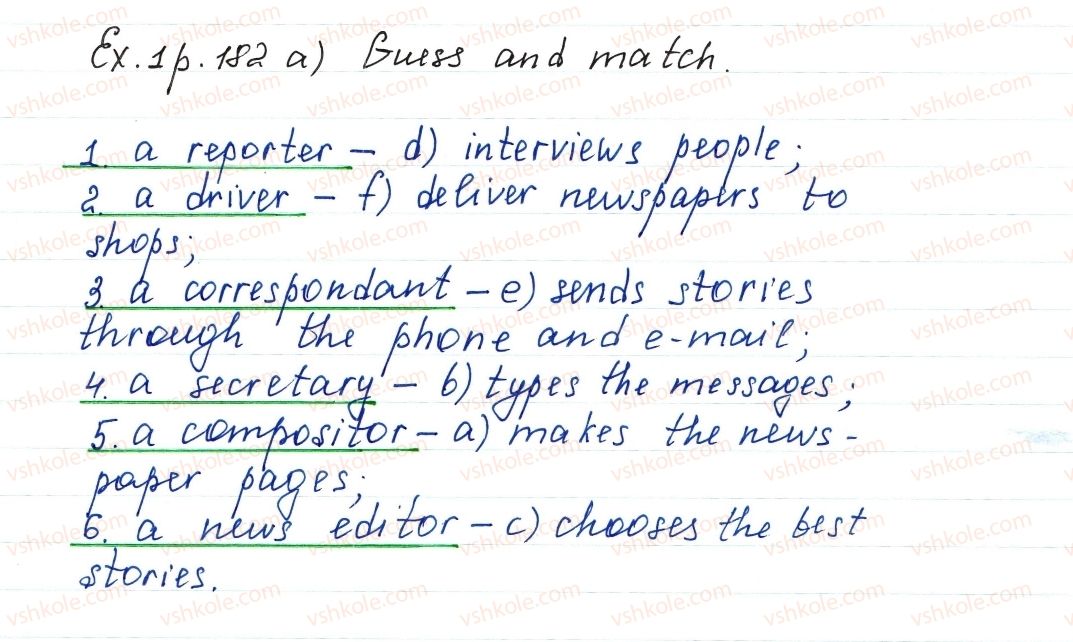 Ex. 1 p. 182 a) Guess and match.
1. a reporter – d) interviews people;
2. a driver – f) deliver newspapers to
shops;
3. a correspondant – e) sends stories
through the phone and e-mail;
4. a secretary – b) types the messages;
5. a compositor – a) makes the news-
paper pages;
6. a news editor – c) chooses the best
stories.